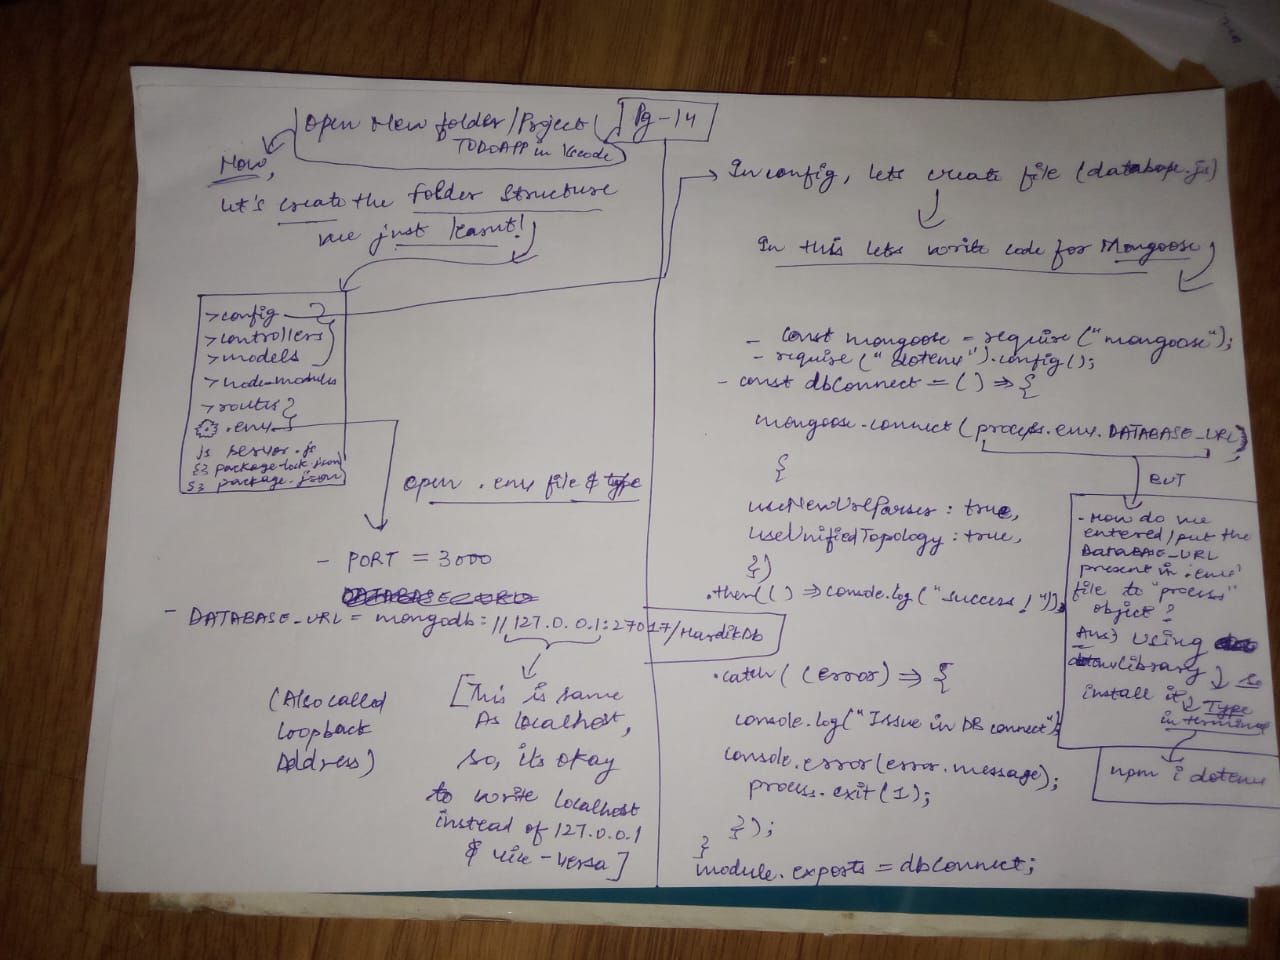 Open New folder/Project (
TODOAPP in Vscode)
Pg-14
Now,
let's create the folder structure
we just learnt!
> config
> controllers
> models
> node_modules
> routes
.env
js server.js
{} package-lock.json
{} package.json
open .env file & type
- PORT = 3000
- DATABASE_URL = mongodb://127.0.0.1:27017/HardikDb
(Also called
loopback
Address)
[This is same
As localhost,
so, its okay
to write localhost
instead of 127.0.0.1
& vice-versa]
In config, lets create file (database.js)
In this lets write code for Mongoose
- const mongoose = require("mongoose");
- require("dotenv").config();
- const dbConnect = () => {
mongoose.connect(process.env.DATABASE_URL,
{
useNewUrlParser: true,
useUnifiedTopology: true,
})
.then(() => console.log("success!"))
.catch((error) => {
console.log("Issue in DB connect");
console.error(error.message);
process.exit(1);
});
}
module.exports = dbConnect;
BUT
- How do we
entered/put the
DATABASE_URL
present in '.env'
file to "process"
object?
Ans) Using
dotenv library so
install it Type
in terminal
npm i dotenv